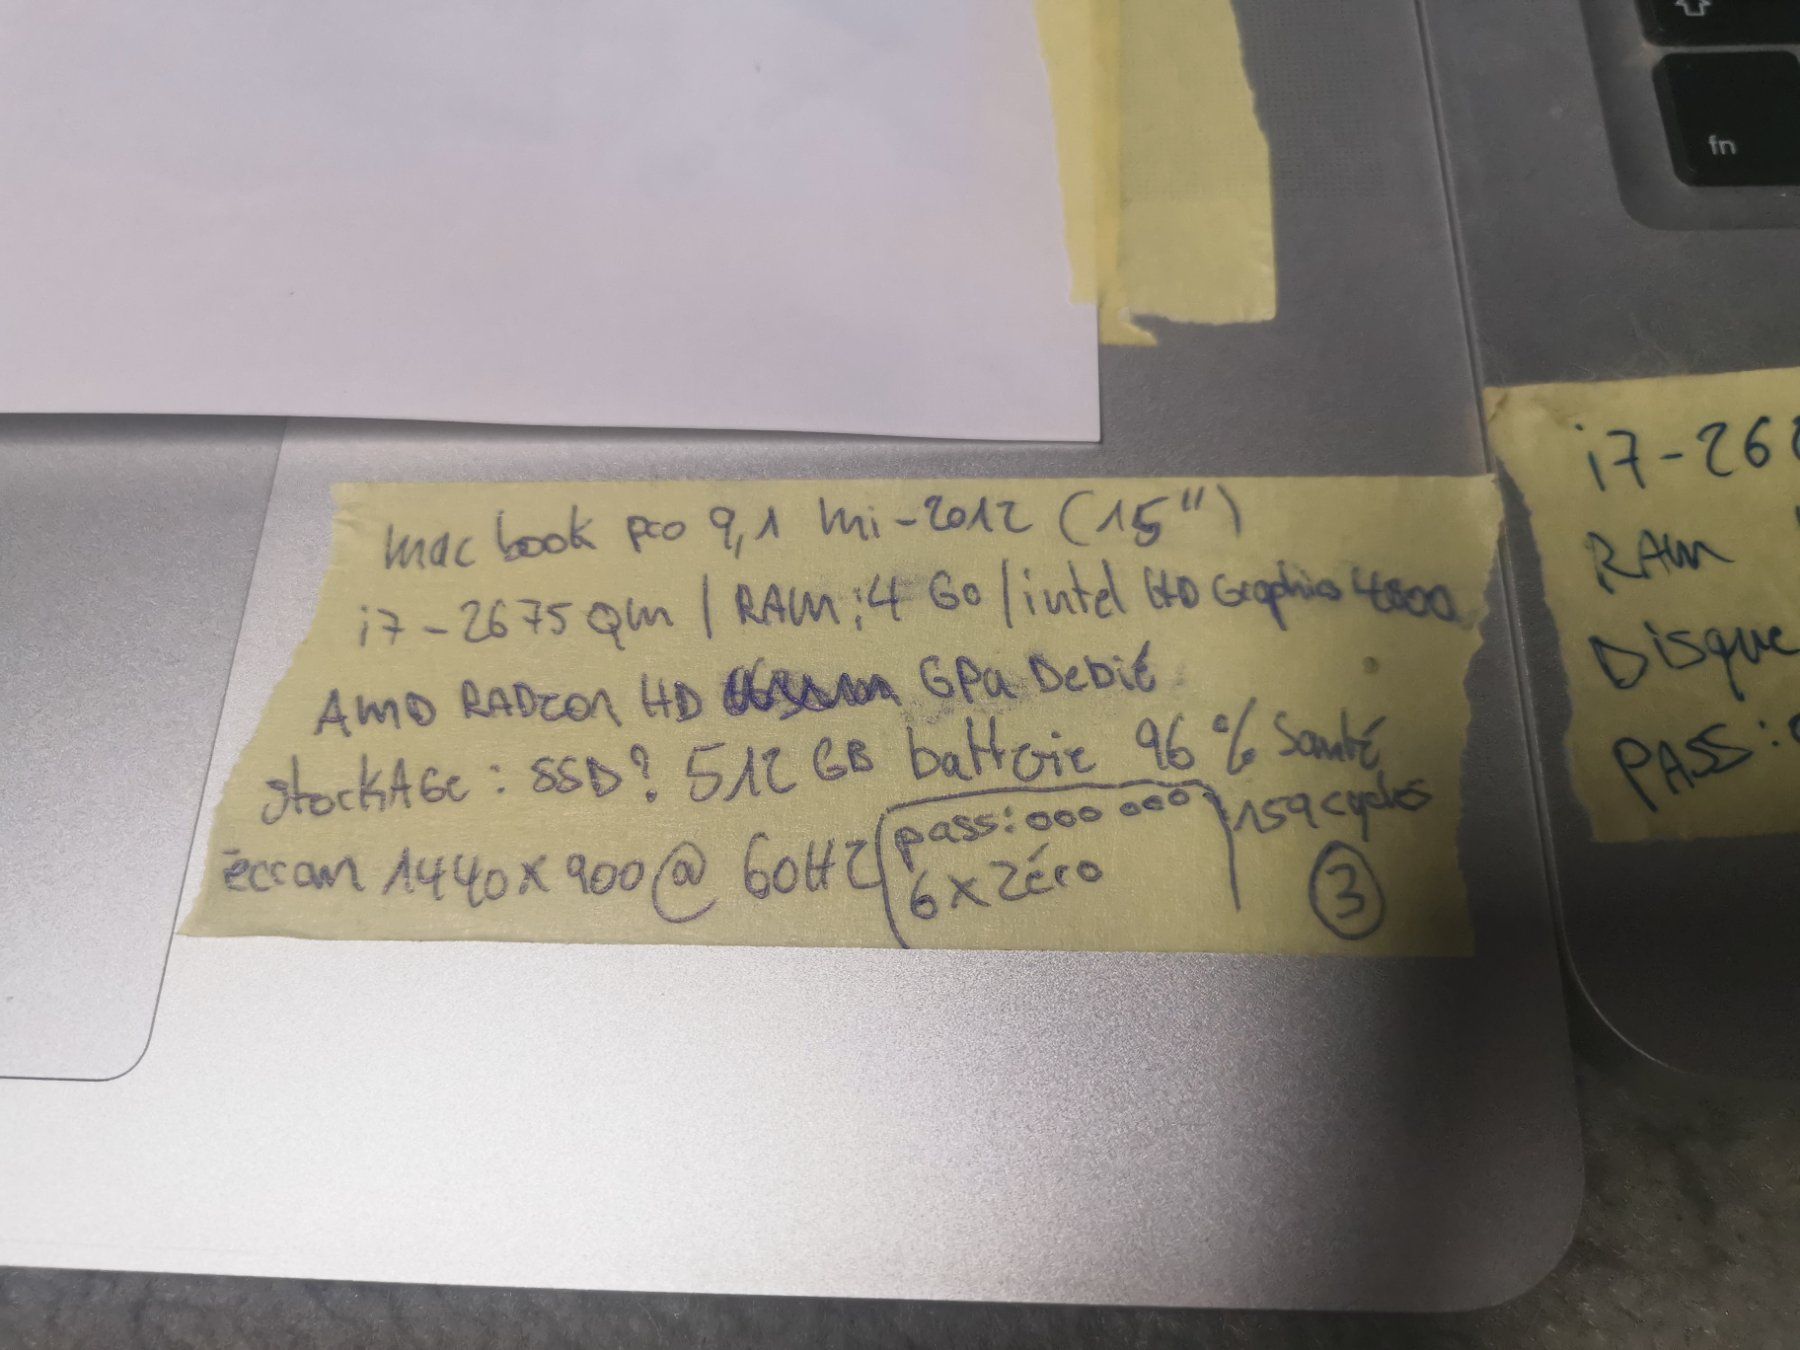 fn
mac book pro 9,1 mi-2012 (15")
i7-2675QM / RAM: 4 Go / intel HD Graphics 4000
AMD RADEON HD GPU Dédié
stockAGE : SSD? 512 GB batterie 96 % Santé
159 cycles
écran 1440x900 @ 60HZ
pass: 000 000
6 x zéro
3
i7-26
RAM
Disque
PASS: